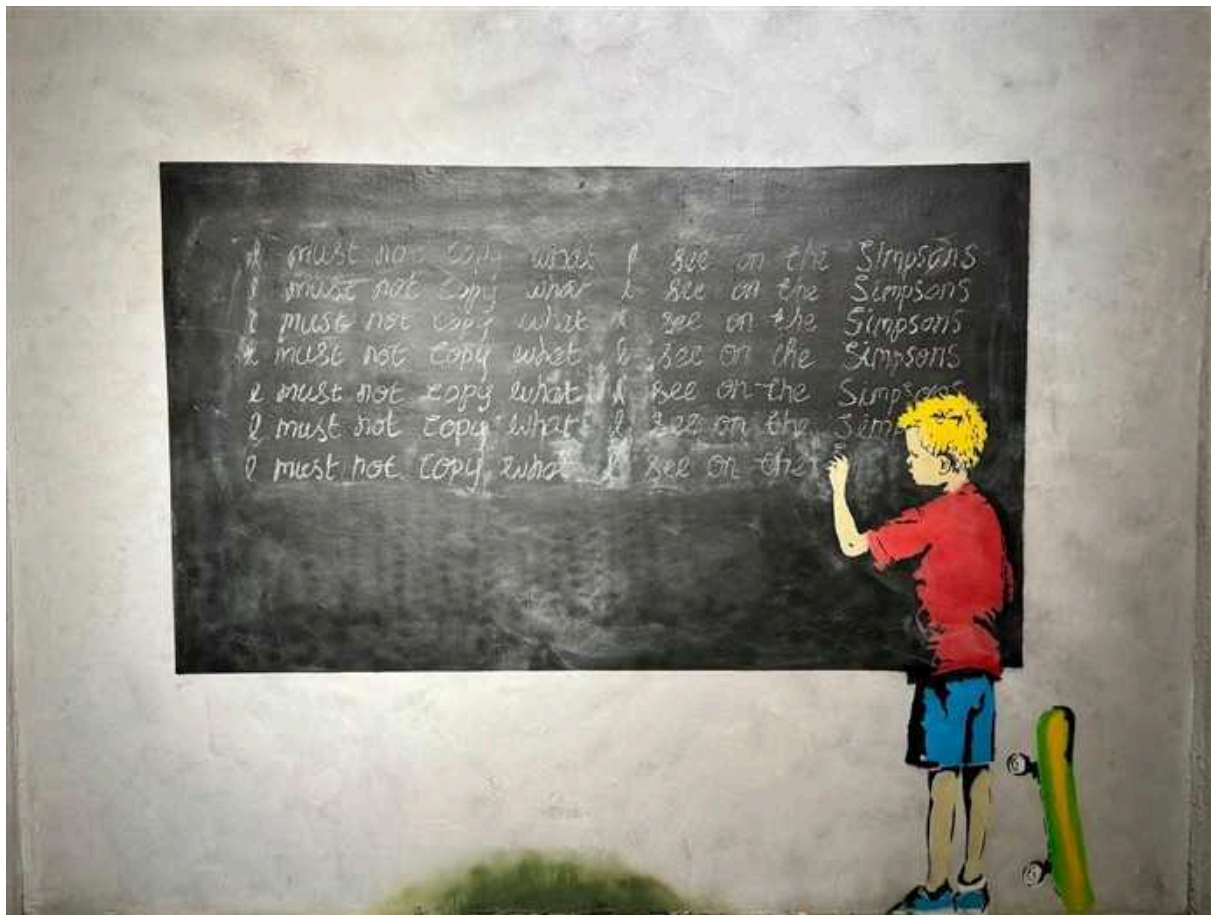 I must not copy what I see on the Simpsons
I must not copy what I see on the Simpsons
I must not copy what I see on the Simpsons
I must not copy what I see on the Simpsons
I must not copy what I see on the Simpsons
I must not copy what I see on the Simp
I must not copy what I see on the